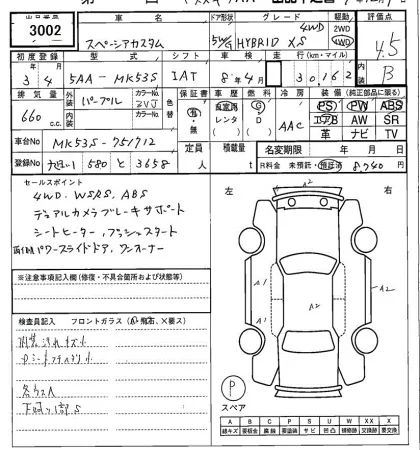 出品番号 車名 ドア形状 グレード 駆動 評価点
3002 スペーシアカスタム 5W/G HYBRID XS 4WD 2WD 4WD 4.5
初度登録 型式 シフト 車検 走行(km・マイル) 内装
3 4 5AA-MK53S IAT 8年4月 30,162 B
排気量 外装 カラーNo. 色替 保証書 車歴 燃料 冷房 装備(純正部品に限る)
660 c.c. パープル ZVJ 有・無 自家用 レンタ G D AAC PS PW ABS エアB AW SR 革 ナビ TV
内装 カラーNo.
車台No MK53S-751712 定員 人 積載量 t 名変期限 年 月 日
登録No 580 と 3658 R料金 未預託・預託済 8,740円
セールスポイント
4WD. WSRS. ABS
デュアルカメラブレーキサポート
シートヒーター, プッシュスタート
両側パワースライドドア, ワンオーナー
※注意事項記入欄(修復・不具合箇所および状態等)
検査員記入 フロントガラス(A.飛石、X要ス)
内装汚れキズ小
各ウスA
左 右
A2
A1
A1
A2
A2
P
スペア
A B C P S U W X XX
線キズ 要板金 腐蝕 要塗装 サビ 凹凸 補修跡 要交換 交換跡